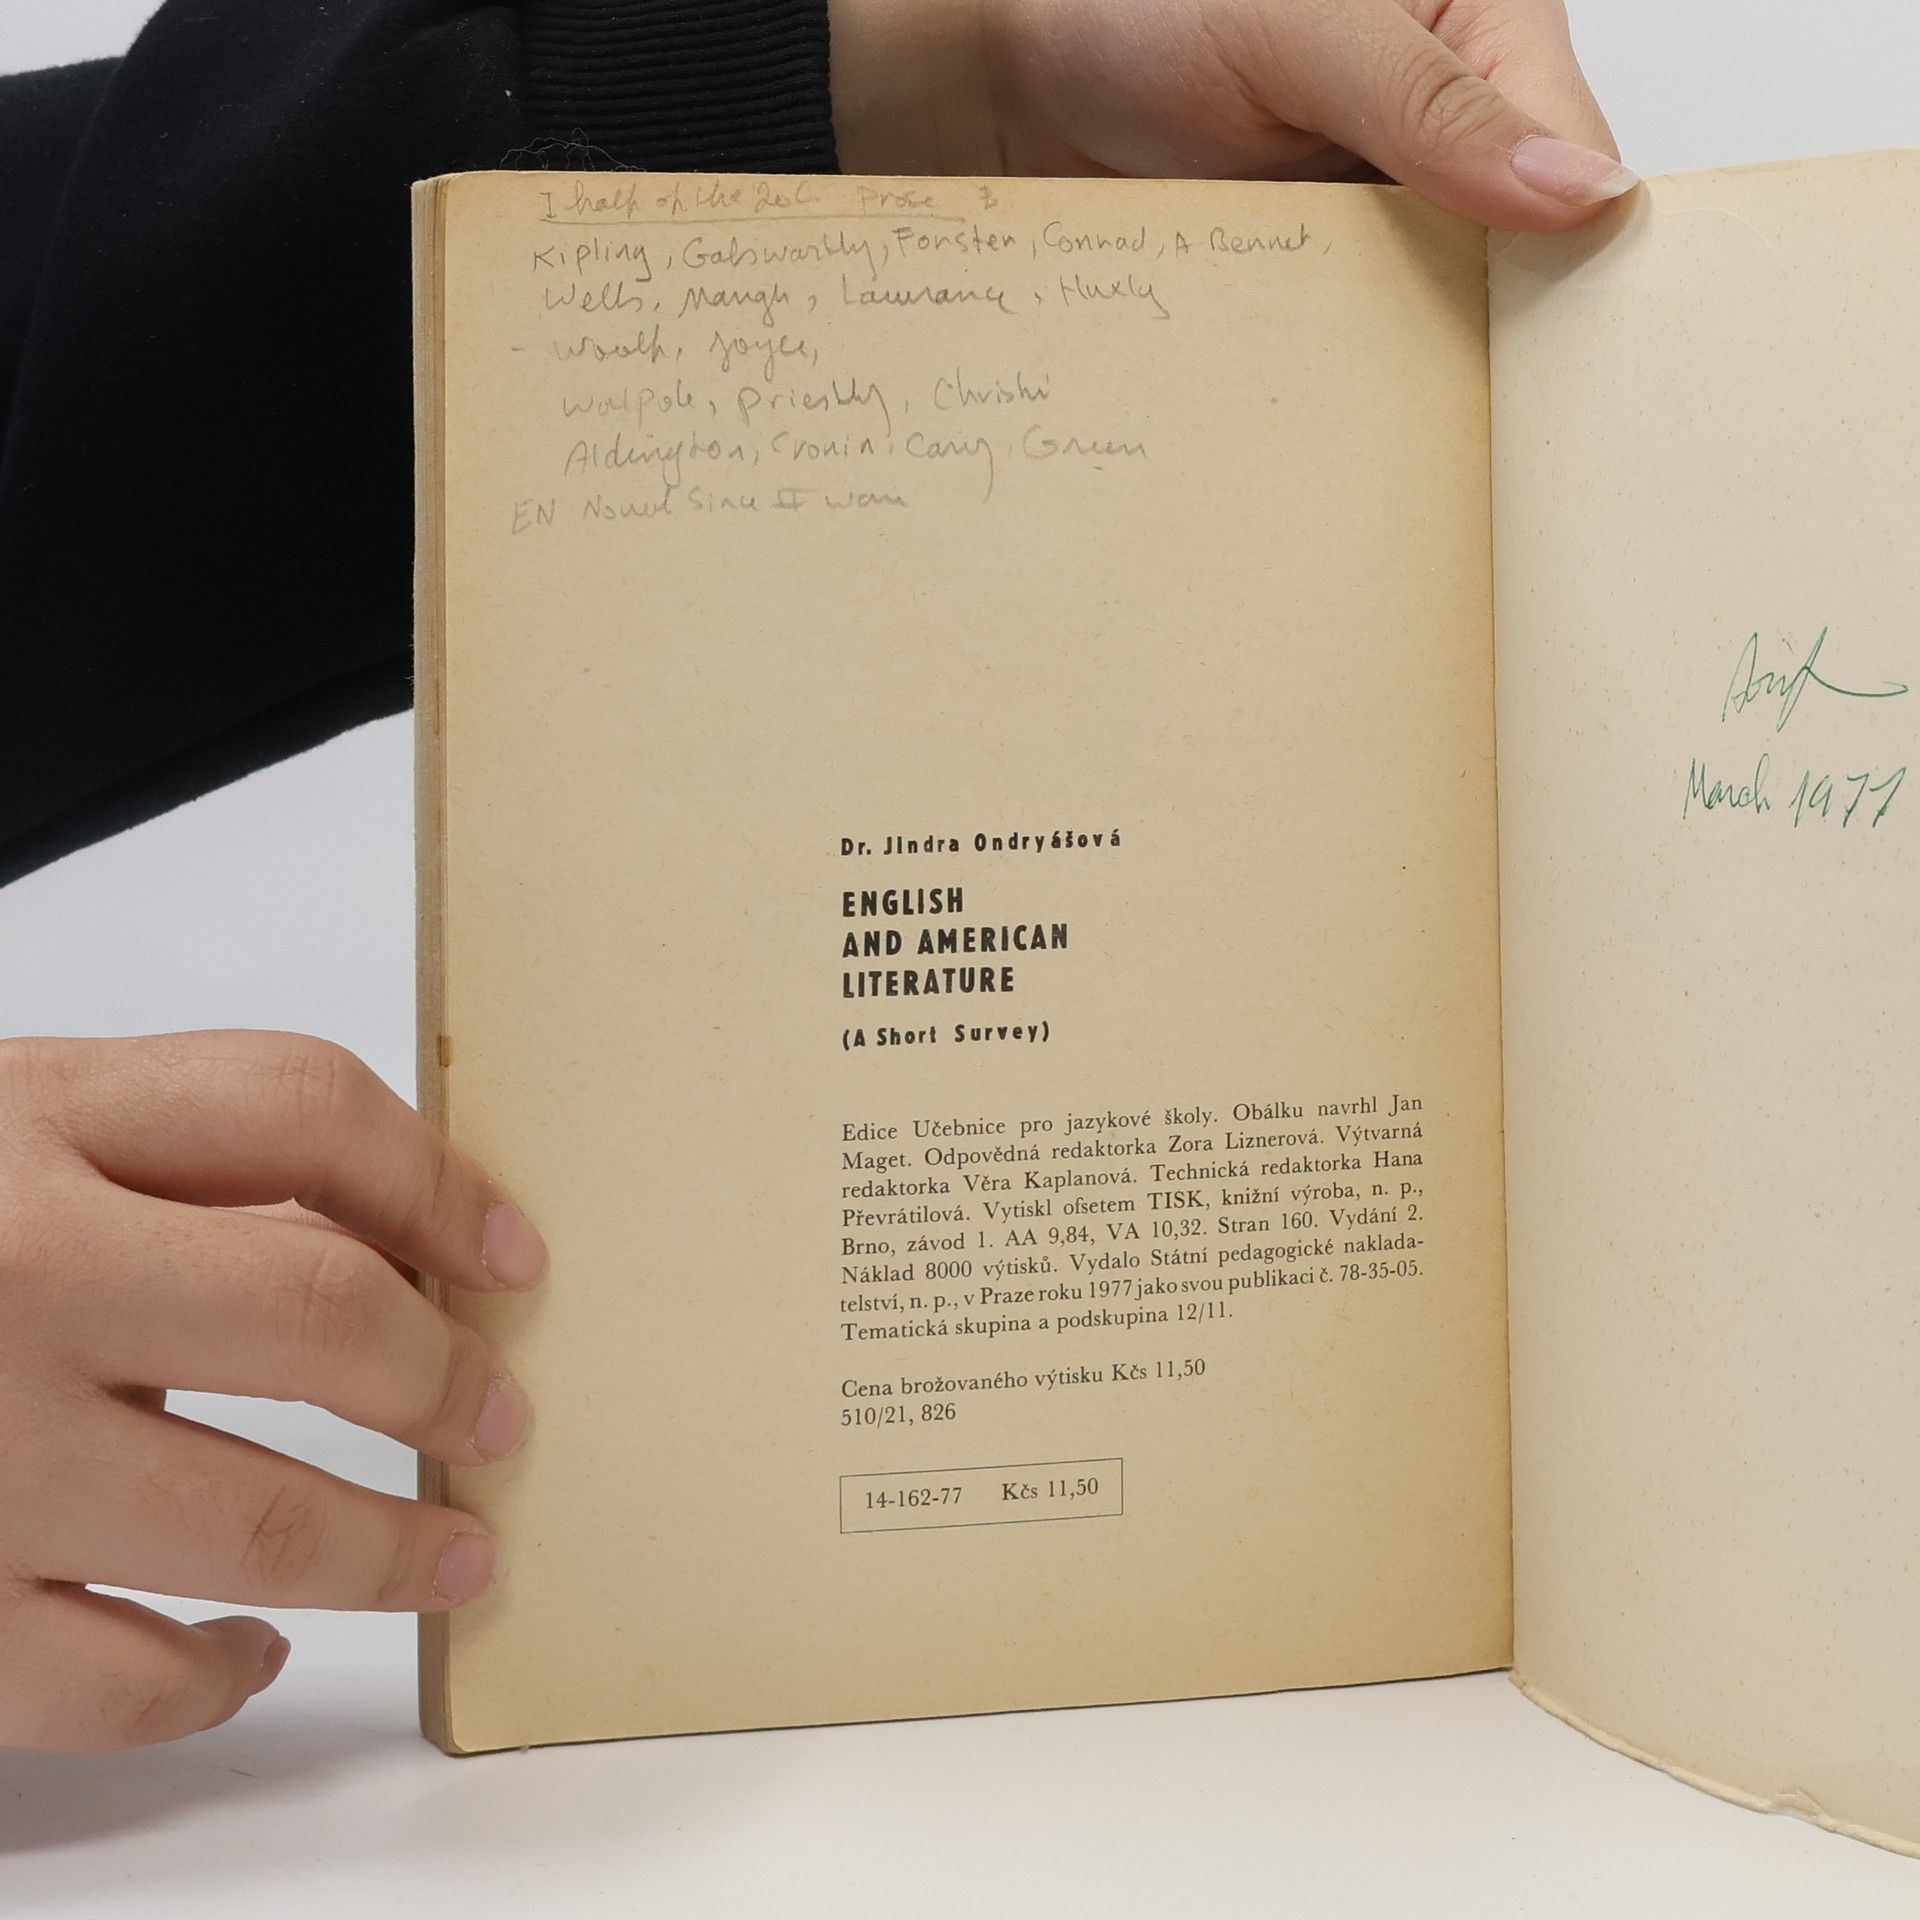 I half of the 20C. Prose
Kipling, Galsworthy, Forster, Conrad, A Bennet,
Wells, Maugh, Lawrance, Huxly
- Woolf, Joyce,
Walpole, Priestly, Christi
Aldington, Cronin, Cary, Green
EN Novel Since II war
Dr. Jindra Ondryášová
ENGLISH
AND AMERICAN
LITERATURE
(A Short Survey)
Edice Učebnice pro jazykové školy. Obálku navrhl Jan
Maget. Odpovědná redaktorka Zora Liznerová. Výtvarná
redaktorka Věra Kaplanová. Technická redaktorka Hana
Převrátilová. Vytiskl ofsetem TISK, knižní výroba, n. p.,
Brno, závod 1. AA 9,84, VA 10,32. Stran 160. Vydání 2.
Náklad 8000 výtisků. Vydalo Státní pedagogické naklada-
telství, n. p., v Praze roku 1977 jako svou publikaci č. 78-35-05.
Tematická skupina a podskupina 12/11.
Cena brožovaného výtisku Kčs 11,50
510/21, 826
14-162-77 Kčs 11,50
March 1977